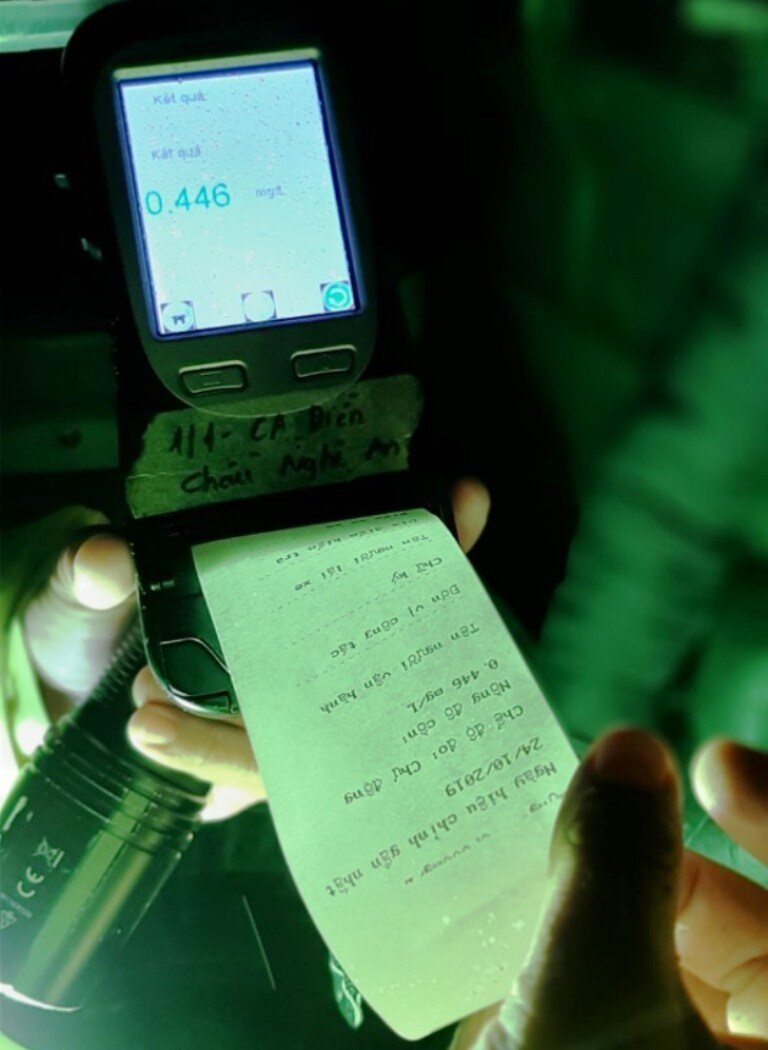 Kết quả:
Kết quả
0.446 mg/L
1/1- CA Diễn
Châu Nghệ An
Ngày hiệu chỉnh gần nhất
24/10/2019
Chế độ đo: Chủ động
Nồng độ cồn:
0.446 mg/L
Tên người vận hành
Đơn vị công tác
Chữ ký
Tên người lái xe
kiểm tra
CE